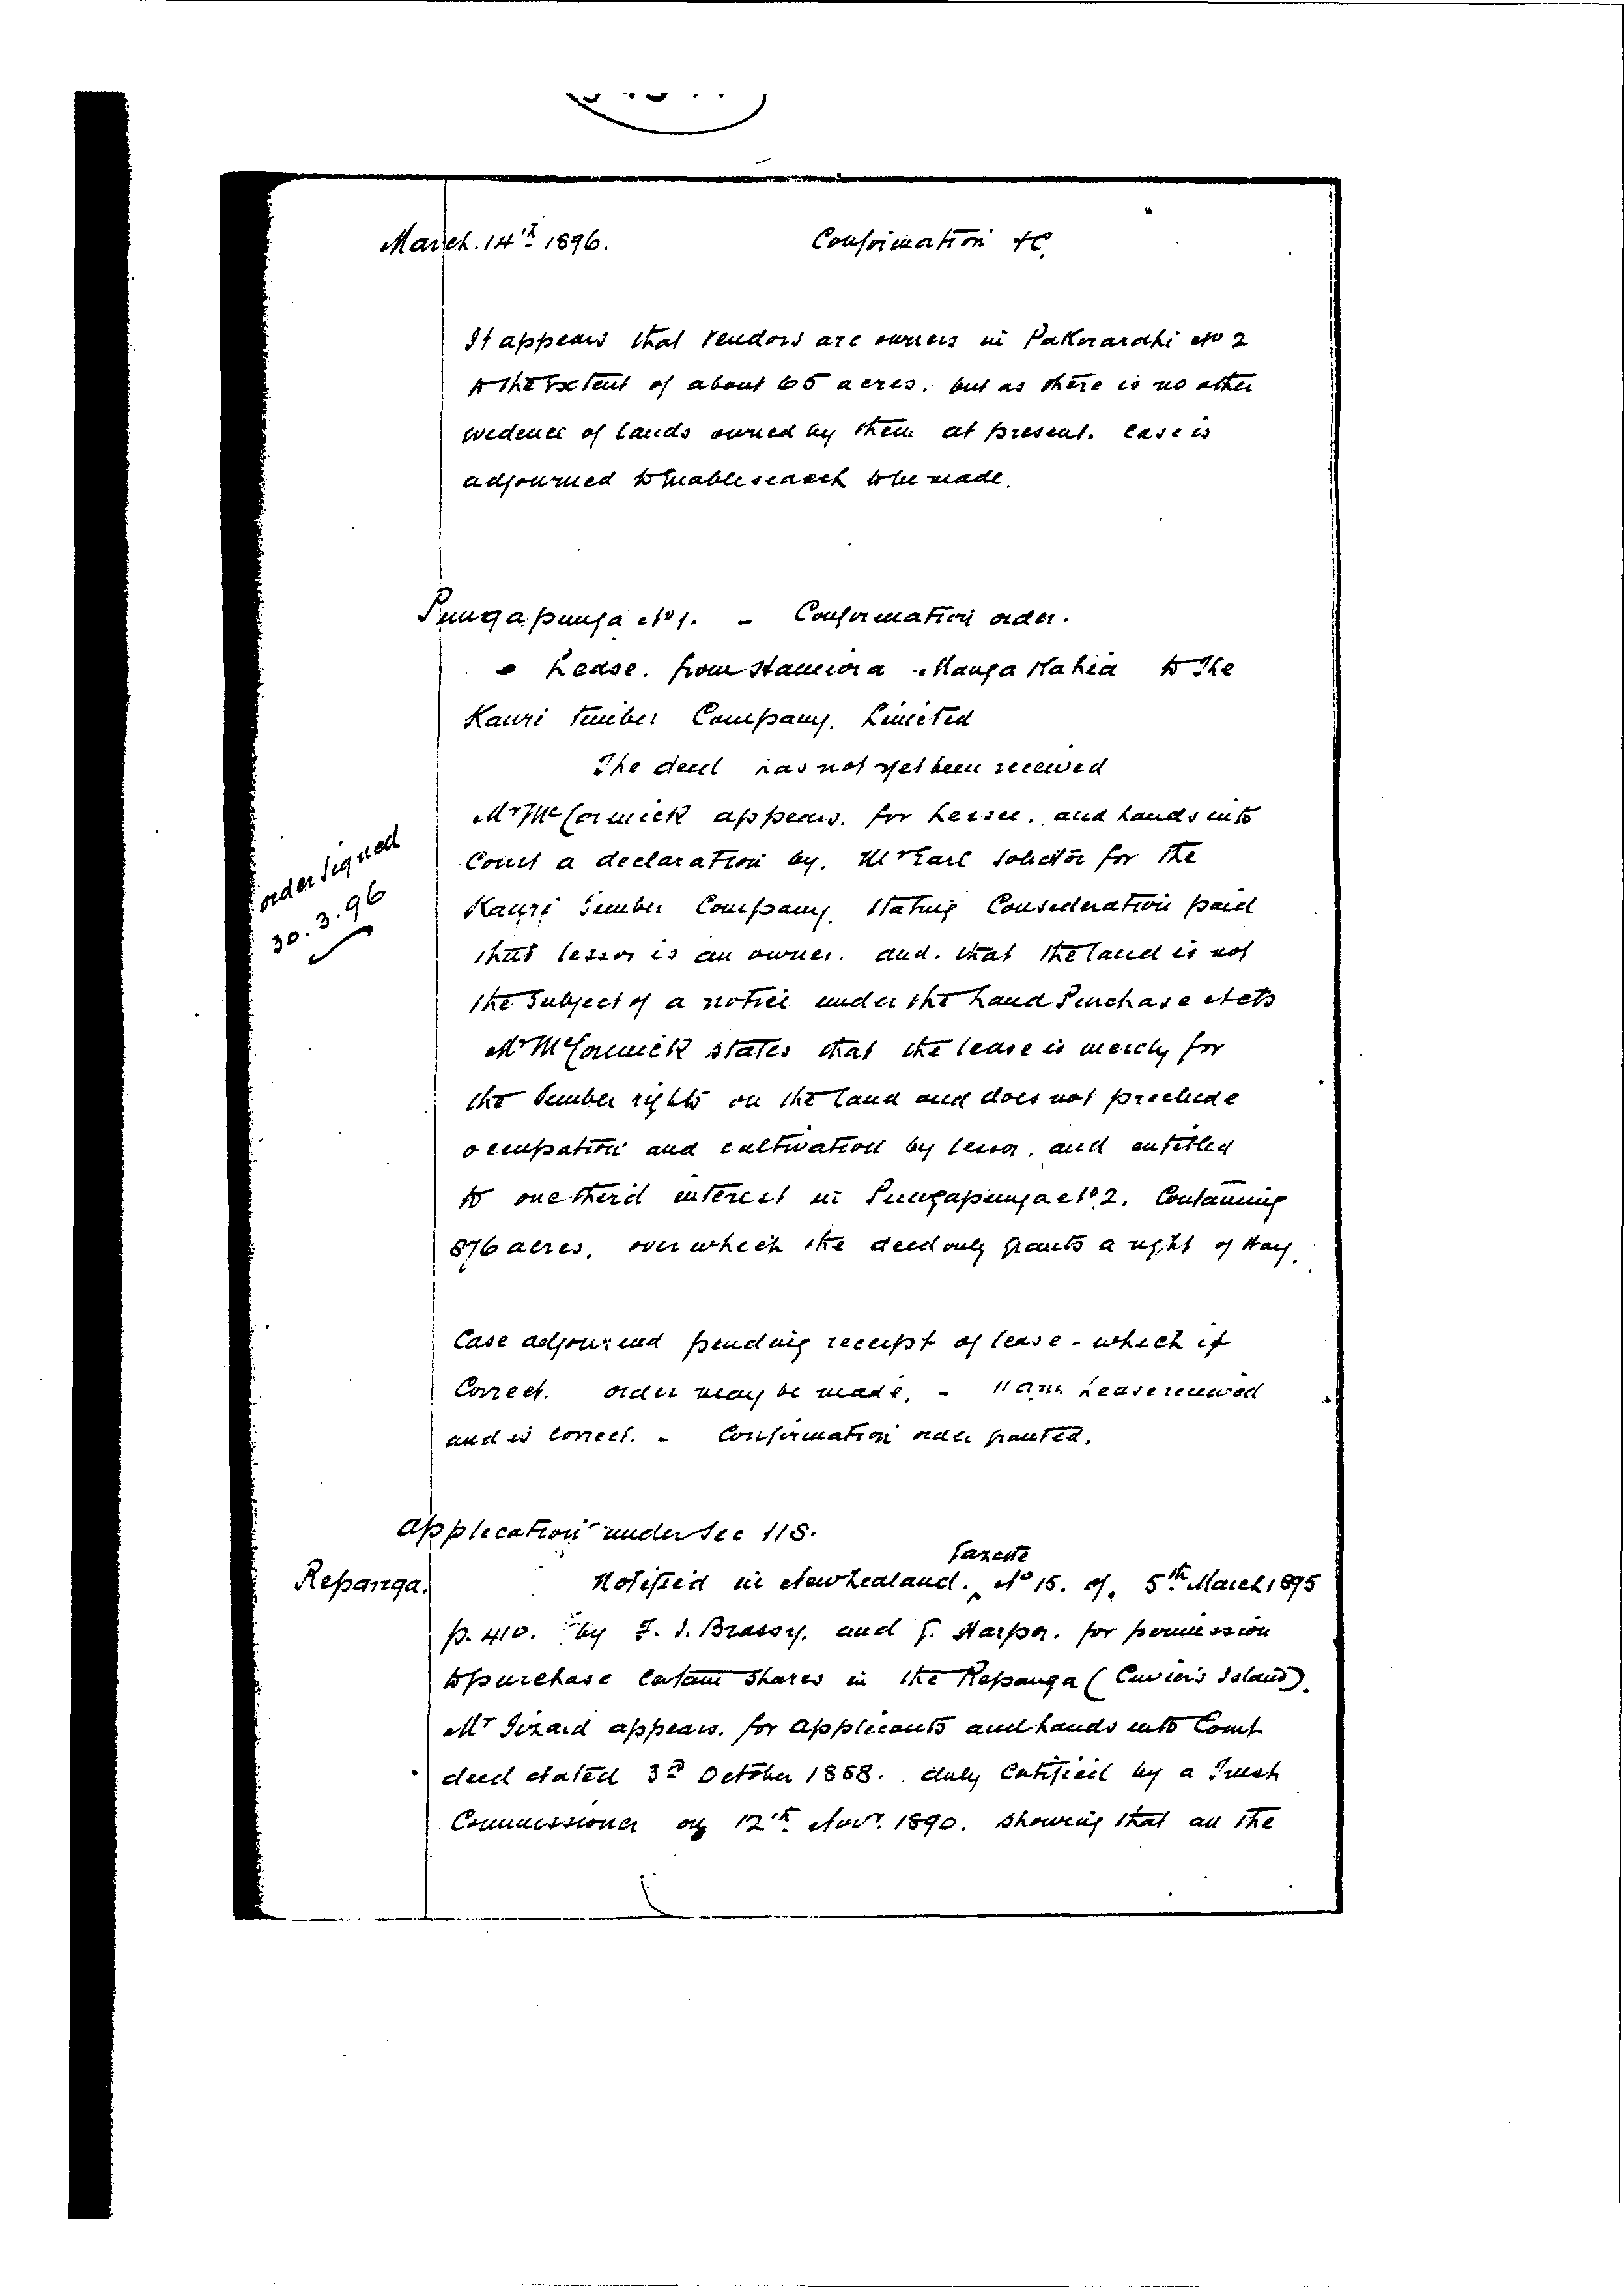 March. 14th 1896. Confirmation &c.
It appears that Vendors are owners in No 2
to the Extent of about 65 acres. but as there is no other
evidence of lands owned by them at present. Case is
adjourned to enable search to be made.
Pungapunga No 1. - Confirmation order.
Lease. from Hamiora Mangakahia to The
Kauri Timber Company. Limited
The deed has not yet been received
Mr McCormick appears. for Lessee. and hands into
Court a declaration by. Mr Earl Solicitor for the
Kauri Timber Company. Stating Consideration paid
that lessor is an owner. and. that the land is not
the Subject of a notice under the Land Purchase Acts
Mr McCormick states that the lease is merely for
the timber rights on the land and does not preclude
occupation and cultivation by lessor. and entitled
to one third interest in Pungapunga No 2. Containing
876 acres. over which the deed only grants a right of Way.
order Signed
30.3.96
Case adjourned pending receipt of lease - which if
Correct. order may be made. - 11 am Lease received
and is correct. - Confirmation order granted.
Application under Sec 118.
Repanga. Notified in New Zealand. Gazette No 15. of. 5th March 1895
p. 410. by F. J. Brassy. and G. Harper. for permission
to purchase Certain Shares in the Repanga (Cuvier's Island).
Mr Izard appears. for applicants and hands into Court
deed dated 3d October 1888. duly Certified by a Trust
Commissioner on 12th Novr. 1890. showing that all the